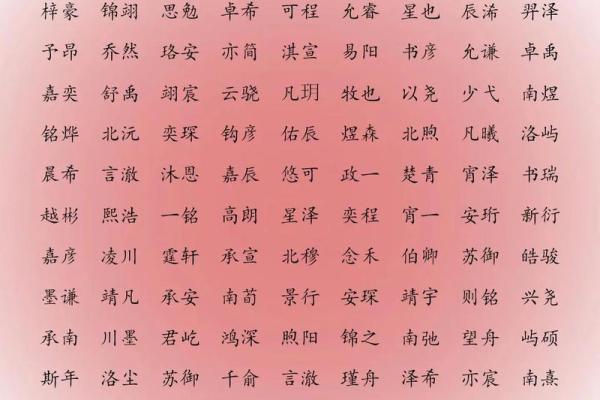 梓豪 锦翊 思勉 卓希 可程 允睿 星也 辰浠 羿泽
予昂 乔然 珞安 亦简 淇宣 易阳 书彦 允谦 卓禹
嘉奕 舒禹 翊宸 云骁 凡玥 牧也 以尧 少弋 南煜
铭烨 北沅 奕琛 钧彦 佑辰 煜森 北煦 凡曦 洛屿
晨希 言澈 沐恩 嘉辰 悠可 政一 楚青 宵泽 书瑞
越彬 熙浩 一铭 高朗 星泽 奕程 宵一 安珩 新衍
嘉彦 凌川 霆轩 承宣 北穆 念禾 伯卿 苏御 皓骏
墨谦 靖凡 承安 南荀 景行 安琛 靖宇 则铭 兴尧
承南 川墨 君屹 鸿深 煦阳 锦之 南弛 望舟 屿硕
斯年 洛尘 苏御 千俞 言澈 瑾舟 泽希 亦宸 南熹